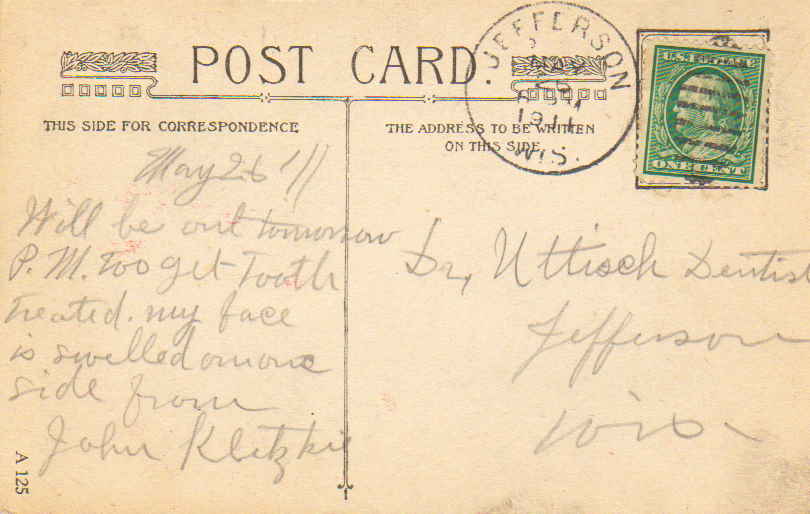 POST CARD.
THIS SIDE FOR CORRESPONDENCE
THE ADDRESS TO BE WRITTEN
ON THIS SIDE
JEFFERSON
MAY
1911
WIS.
U.S. POSTAGE
ONE CENT
May 26 '11
Will be out tomorrow
P.M. Too get Tooth
treated. my face
is swelled on one
side from
John Kletzkie
Dr, Uttisch Dentist
Jefferson
Wis
A 125